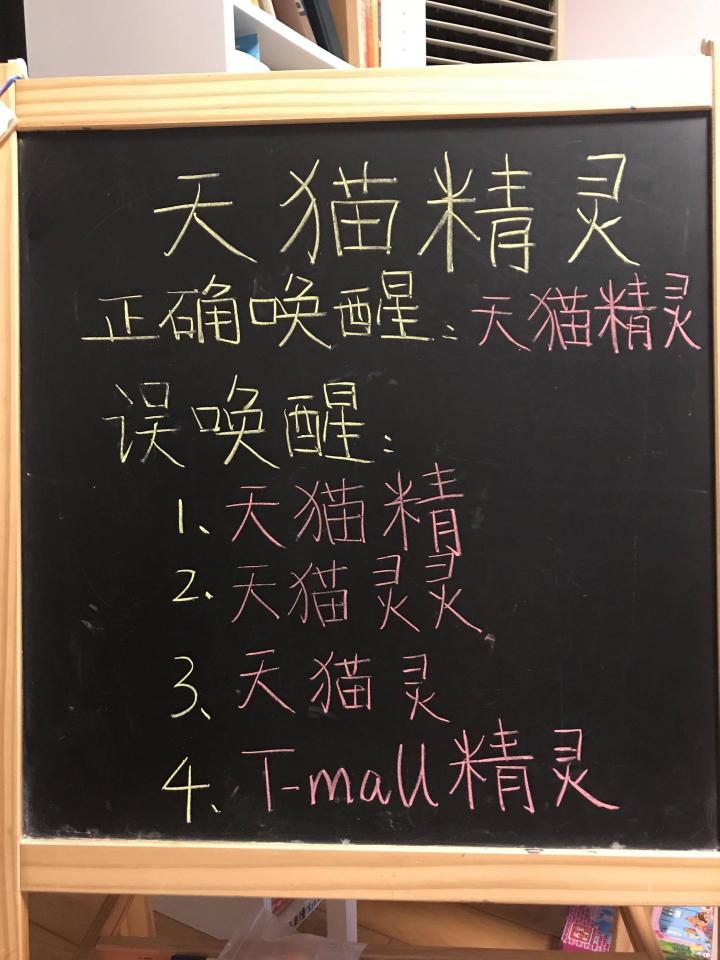 天猫精灵
正确唤醒：天猫精灵
误唤醒：
1、天猫精
2、天猫灵灵
3、天猫灵
4、T-mall精灵